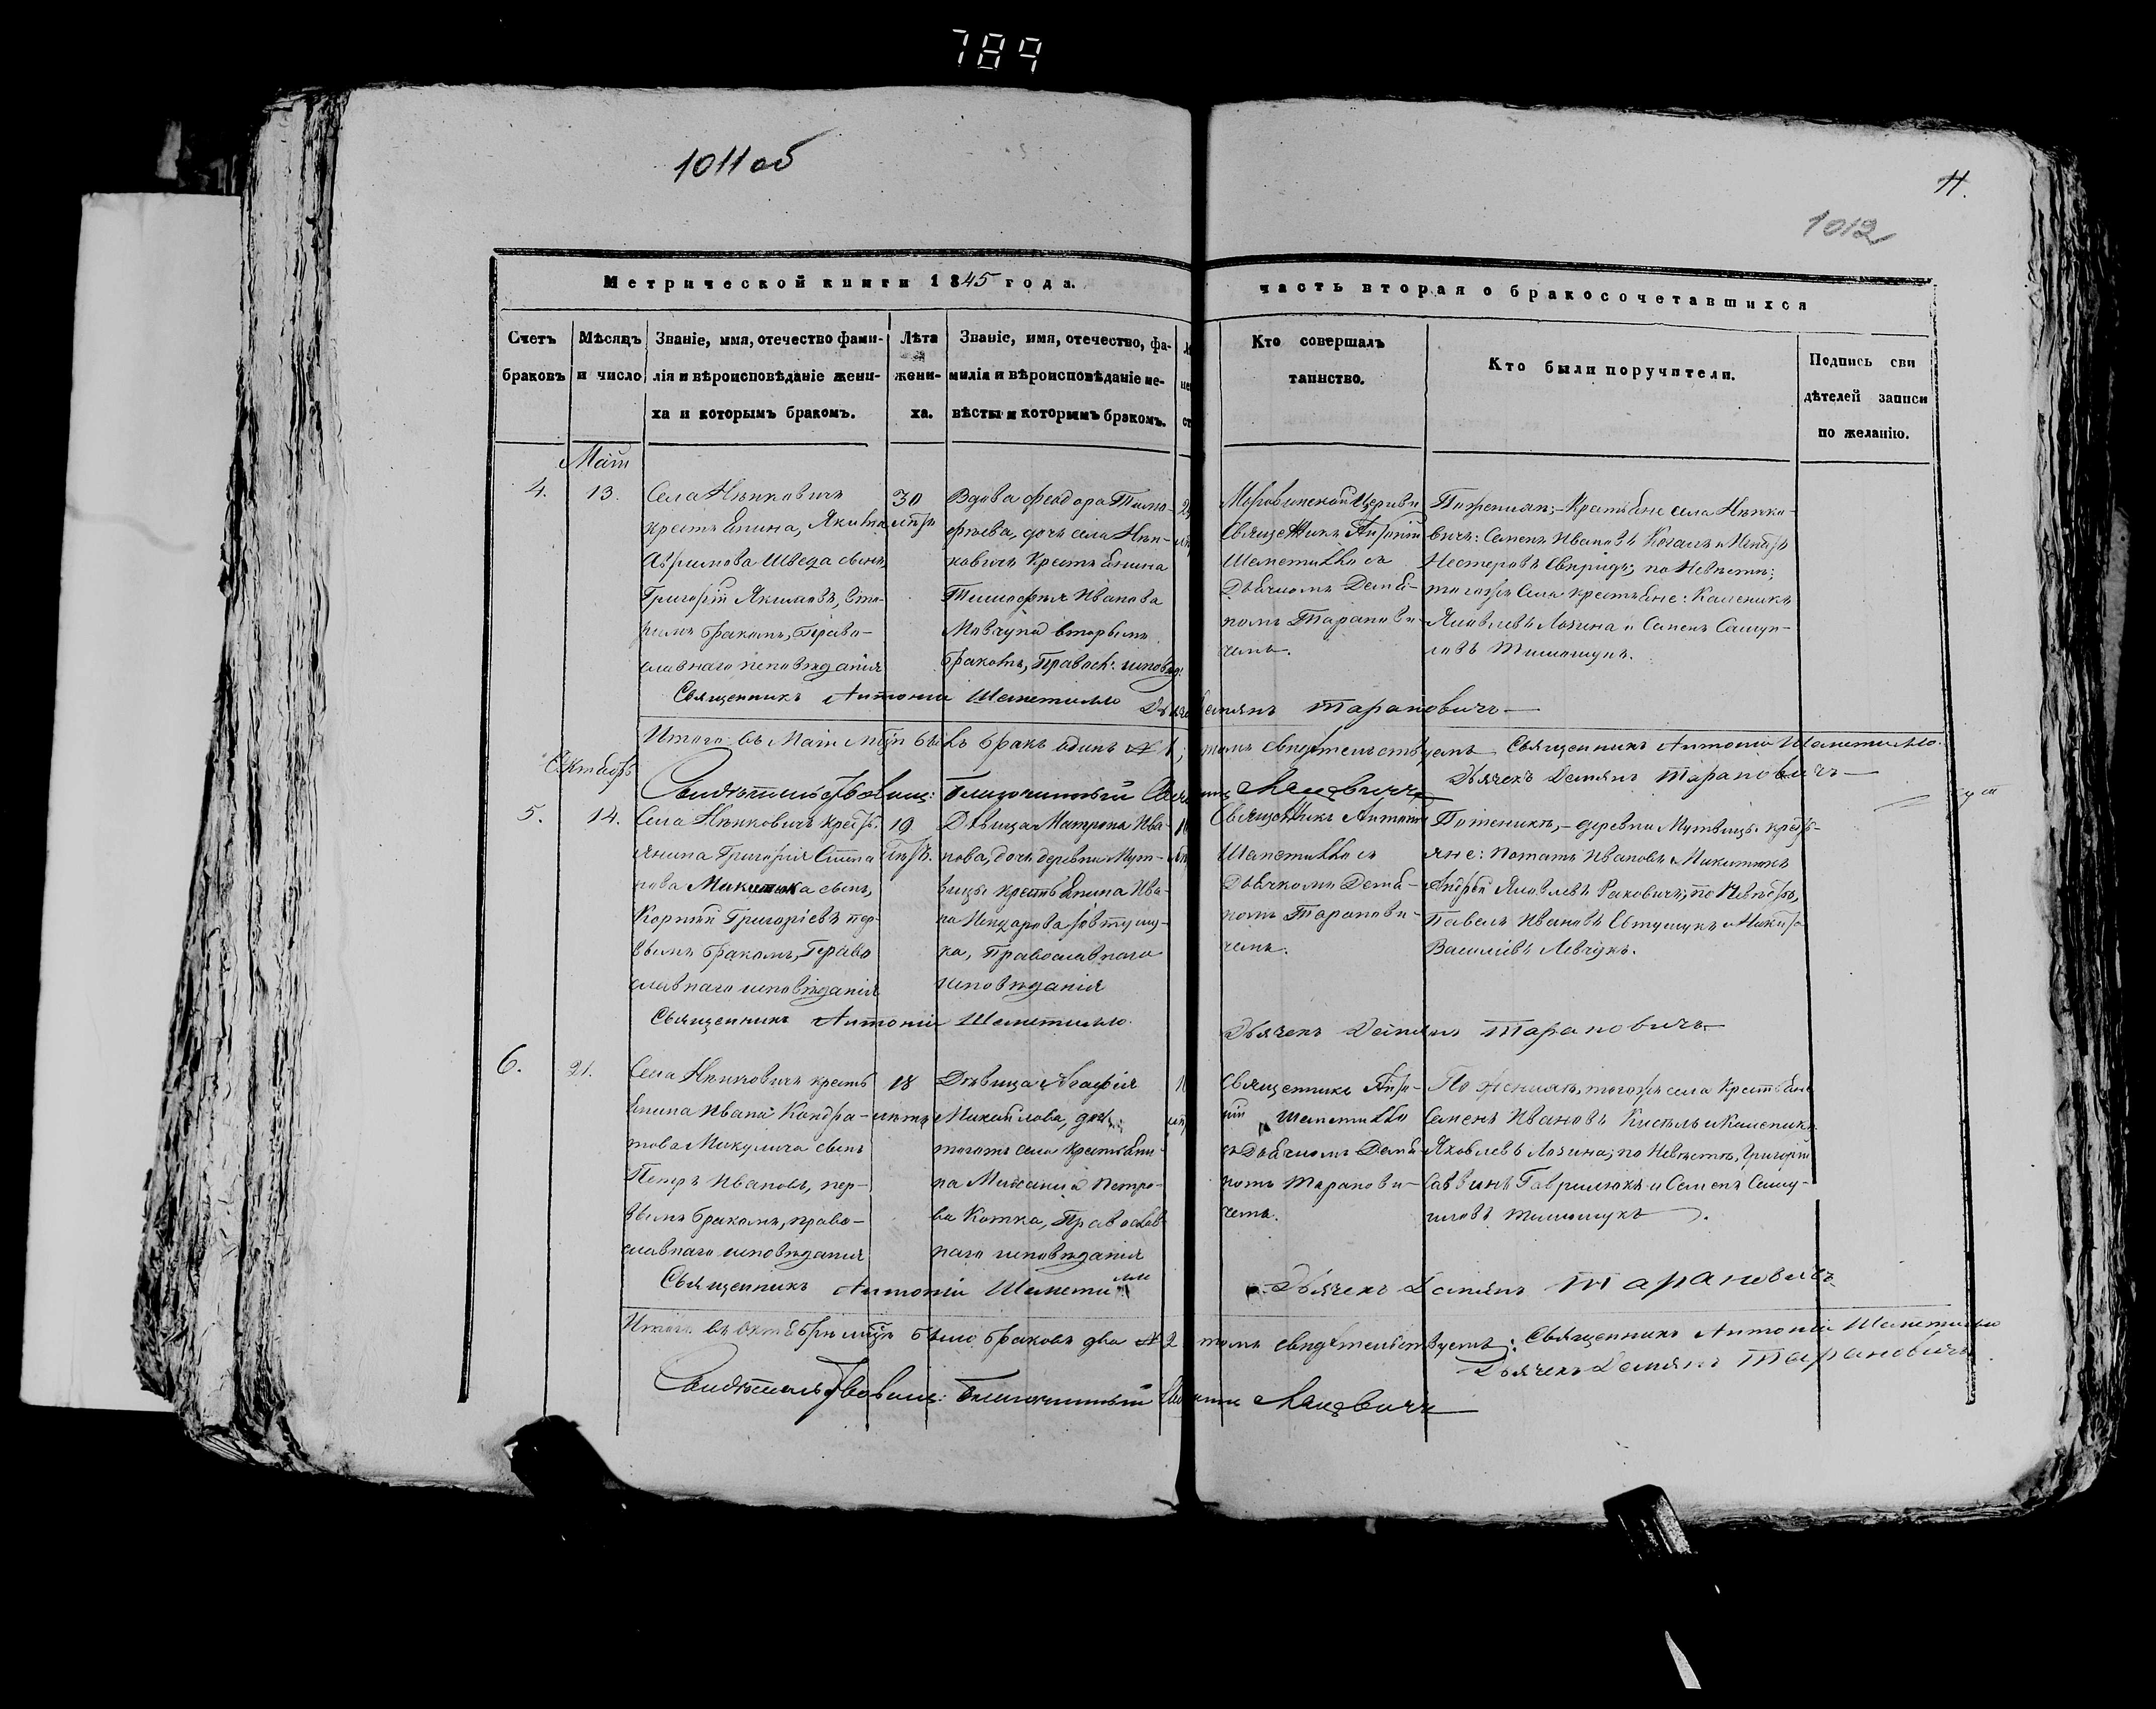 789
1011 об
11.
1012
Метрической книги 1845 года.
часть вторая о бракосочетавшихся
Счетъ браковъ
Мѣсяцъ и число
Званіе, имя, отечество фами-
лія и вѣроисповѣданіе жени-
ха и которымъ бракомъ.
Лѣта
жени-
ха.
Званіе, имя, отечество, фа-
милія и вѣроисповѣданіе не-
вѣсты и которымъ бракомъ.
Кто совершалъ
таинство.
Кто были поручители.
Подпись сви
дѣтелей записи
по желанію.
Маій
4.
13.
Села Нѣнковичъ
крестьянина,
Швеца сынъ
Григорій Якимовъ, вто-
рымъ бракомъ, Право-
славнаго исповѣданія
30
лѣтъ
Вдова Феодора Тимо-
фѣева, дочь села Нѣн-
ковичъ Крестьянина
Тимофѣя Иванова
вторымъ
бракомъ, Правосл: исповѣд:
Церкви
Священникъ Антоній
Шеметилло съ
Дьячкомъ Демья-
номъ Таранови-
чемъ.
Крестьяне села Нѣнко-
вичъ: Семенъ Ивановъ
Нестеровъ Свиридъ; по Невѣстѣ;
тогожъ Села крестьяне: Каленикъ
Яковлевъ Лозина и Семенъ Самуи-
ловъ Тимошукъ.
Священникъ Антоній Шеметилло Дьячекъ Демянъ Тарановичъ
Итого въ Маіи мцѣ былъ бракъ одинъ № 1, въ томъ свидѣтельствуемъ Священникъ Антоній Шеметилло.
Дьячекъ Демянъ Тарановичъ
Октябрь
Свидѣтельствовалъ: Благочинный
5.
14.
Села Нѣнковичъ крестьь-
янина Григорія Степа
нова Микитюка сынъ,
Корнѣй Григоріевъ пер-
вымъ бракомъ, Право
славнаго исповѣданія
19
лѣтъ.
Дѣвица Матрона Ива-
нова, дочь деревни Мут-
вицы крестьянина Ива-
на
ка, Православнаго
исповѣданія
Священникъ Антоній
Шеметилло съ
Дьячкомъ Демья-
номъ Таранови-
чемъ.
деревни Мутвицы кресть-
яне: Потапъ Ивановъ Микитюкъ
Андрей Яковлевъ Раковичъ; по Невѣстѣ,
Павелъ Ивановъ Евтушукъ и Никита
Василіевъ Левчукъ.
Священникъ Антоній Шеметилло.
Дьячекъ Демянъ Тарановичъ
6.
21.
Села Нѣнковичъ кресть
янина Ивана Кондра-
това Микулича сынъ
Петръ Ивановъ, пер-
вымъ бракомъ, право-
славнаго исповѣданія
18
лѣтъ
Дѣвица Агафія
Михайлова, дочь
тогожъ села крестьяни-
на Михаила Петро-
ва Котка, Православ-
наго исповѣданія
Священникъ Анто-
ній Шеметилло
съ Дьячкомъ Демья
номъ Таранови-
чемъ.
По Женихѣ, тогожъ села Крестьяне
Семенъ Ивановъ Кисель и Каленикъ
Яковлевъ Лозина; по Невѣстѣ, Григорій
Саввинъ Гаврилюкъ и Семенъ Саму-
иловъ Тимошукъ.
Священникъ Антоній Шеметилло
Дьячекъ Демянъ Тарановичъ
Итого въ Октябрѣ мцѣ было браковъ два № 2 въ томъ свидѣтельствуемъ: Священникъ Антоній Шеметилло
Дьячекъ Демянъ Тарановичъ
Свидѣтельствовалъ: Благочинный